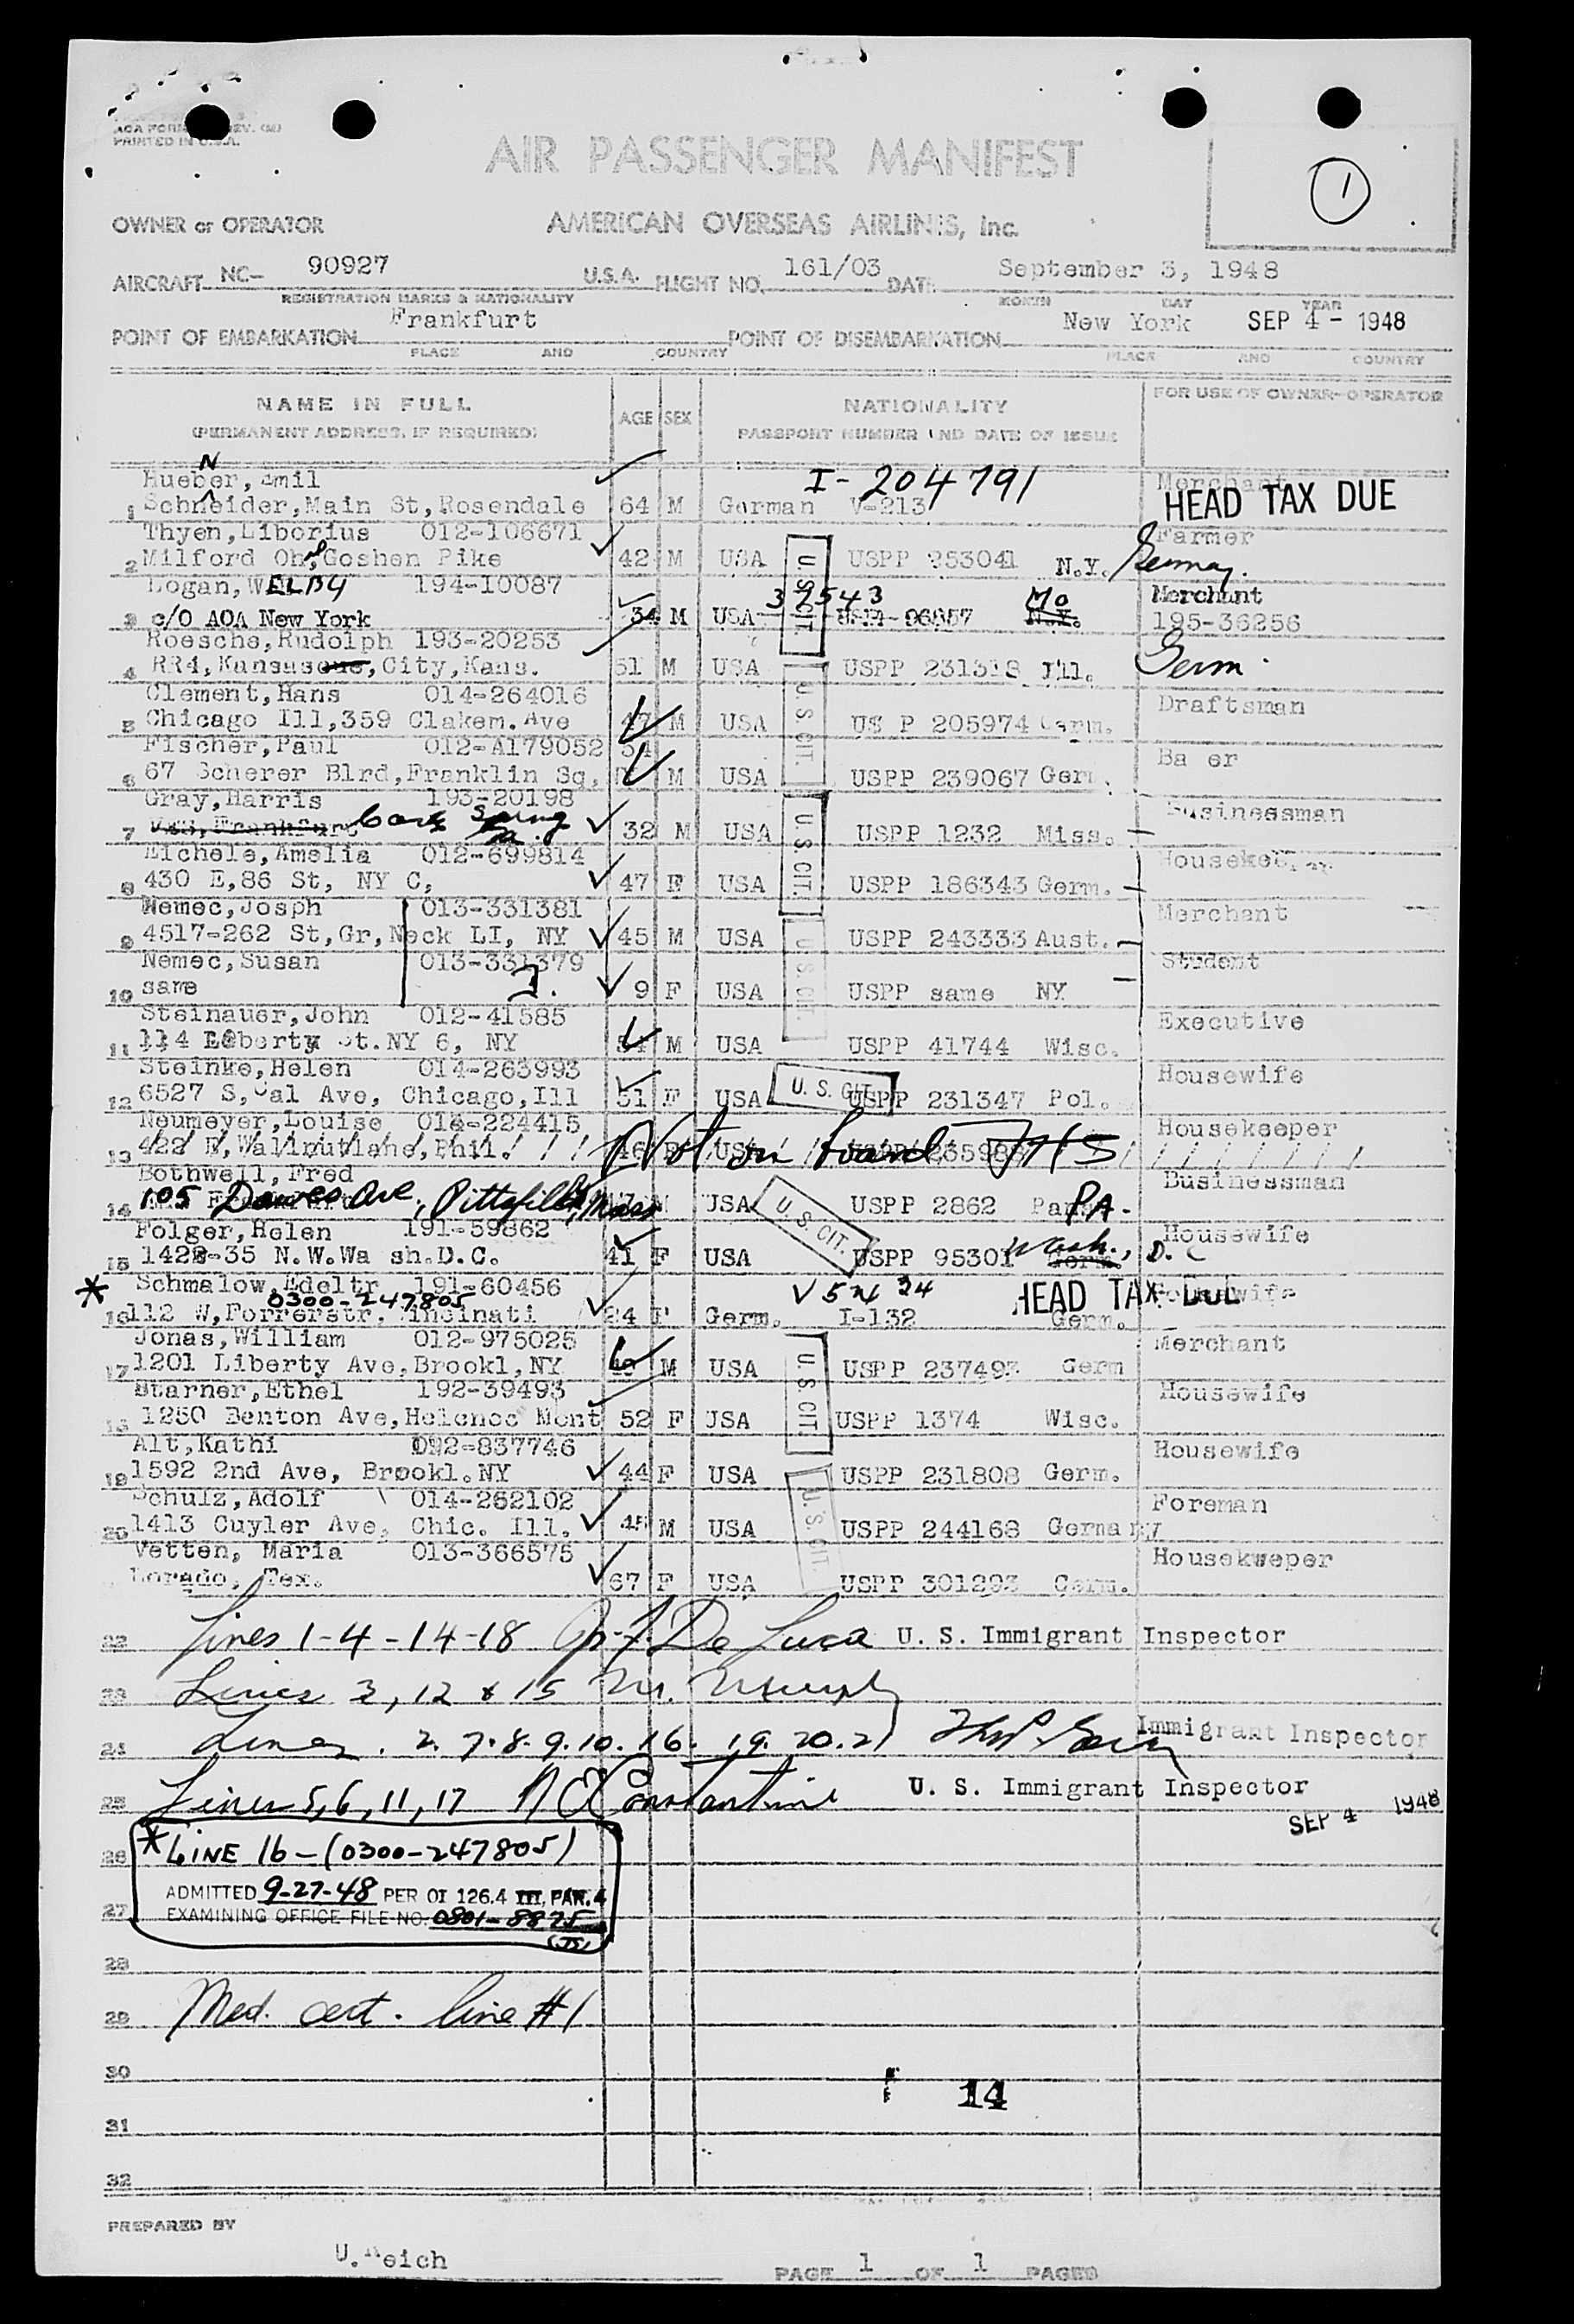 PRINTED IN U.S.A.
AIR PASSENGER MANIFEST
1
OWNER or OPERATOR AMERICAN OVERSEAS AIRLINES, Inc.
AIRCRAFT NC- 90927 U.S.A. FLIGHT NO. 161/03 DATE September 3, 1948
REGISTRATION MARKS & NATIONALITY MONTH DAY YEAR
POINT OF EMBARKATION Frankfurt POINT OF DISEMBARKATION New York SEP 4 - 1948
PLACE AND COUNTRY PLACE AND COUNTRY
NAME IN FULL AGE SEX NATIONALITY FOR USE OF OWNER-OPERATOR
(PERMANENT ADDRESS, IF REQUIRED) PASSPORT NUMBER AND DATE OF ISSUE
N
Hueber, Emil I-204791 Merchant
1 Schneider, Main St, Rosendale 64 M German V-213 HEAD TAX DUE
Thyen, Liborius 012-106671 Farmer
2 Milford Oh, Goshen Pike 42 M USA USPP 253041 N.Y. Germany.
Logan, WELBY 194-10087 39543 Mo Merchant
3 c/o AOA New York 34 M USA N.Y. 195-36256
Roesche, Rudolph 193-20253
4 RR4, Kansas City, Kans. 51 M USA USPP 231318 Ill. Germ.
Clement, Hans 014-264016 Draftsman
5 Chicago Ill, 359 Clakem. Ave 47 M USA US P 205974 Germ.
Fischer, Paul 012-A179052 54 Ba er
6 67 Scherer Blrd, Franklin Sq, M USA USPP 239067 Germ.
Gray, Harris 193-20198 Businessman
7 Cave Spring Ga. 32 M USA USPP 1232 Miss.
Eichele, Amelia 012-699814
8 430 E, 86 St, NY C, 47 F USA USPP 186343 Germ.
Nemec, Josph 013-331381 Merchant
9 4517-262 St, Gr, Neck LI, NY 45 M USA USPP 243333 Aust.
Nemec, Susan 013-331379 Student
10 same 2. 9 F USA USPP same NY
Steinauer, John 012-41585 Executive
11 114 Liberty St. NY 6, NY 54 M USA USPP 41744 Wisc.
Steinke, Helen 014-263993 Housewife
12 6527 S, Cal Ave, Chicago, Ill 51 F USA USPP 231347 Pol.
Neumeyer, Louise 014-224415 Housekeeper
13 422 E, Walnutlane, Phil. 46 F USA Not on board JHS
Bothwell, Fred Businessman
14 105 Dawes Ave, Pittsfield, Mass M USA USPP 2862 PA.
Folger, Helen 191-59862 Housewife
15 1428-35 N.W. Wa sh. D.C. 41 F USA USPP 95301 Wash., D.C
* Schmalow, Edeltr 191-60456 Housewife
0300-247805 HEAD TAX DUE
16 112 W, Forrerstr. Cincinati 24 F Germ. I-132 Germ.
Jonas, William 012-975025 Merchant
17 1201 Liberty Ave, Brookl, NY 49 M USA USPP 237493 Germ
Starner, Ethel 192-39493 Housewife
18 1250 Benton Ave, Helenoc Mont 52 F USA USPP 1374 Wisc.
Alt, Kathi 092-837746 Housewife
19 1592 2nd Ave, Brookl. NY 44 F USA USPP 231808 Germ.
Schulz, Adolf 014-262102 Foreman
20 1413 Cuyler Ave, Chic. Ill. 45 M USA USPP 244168 Germany
Vetten, Maria 013-366575 Housekweper
Loredo, Tex. 67 F USA USPP 301293 Germ.
U.S. CIT.
U.S. CIT.
U.S. CIT.
U.S. CIT.
U.S. CIT.
U.S. CIT.
U.S. CIT.
U.S. CIT.
22 Lines 1-4-14-18 De Luca U. S. Immigrant Inspector
23 Lines 3, 12 & 15 M. Murphy
24 Lines. 2. 7. 8. 9. 10. 16. 19. 20. 21 Immigrant Inspector
25 Lines 5, 6, 11, 17 Constantine U. S. Immigrant Inspector
SEP 4 1948
26 *LINE 16-(0300-247805)
ADMITTED 9-27-48 PER OI 126.4 III, PAR. 4
27 EXAMINING OFFICE FILE NO. 0801-8875
28
29 Med. cert. line #1
30
14
31
32
PREPARED BY
U. Reich
PAGE 1 OF 1 PAGES